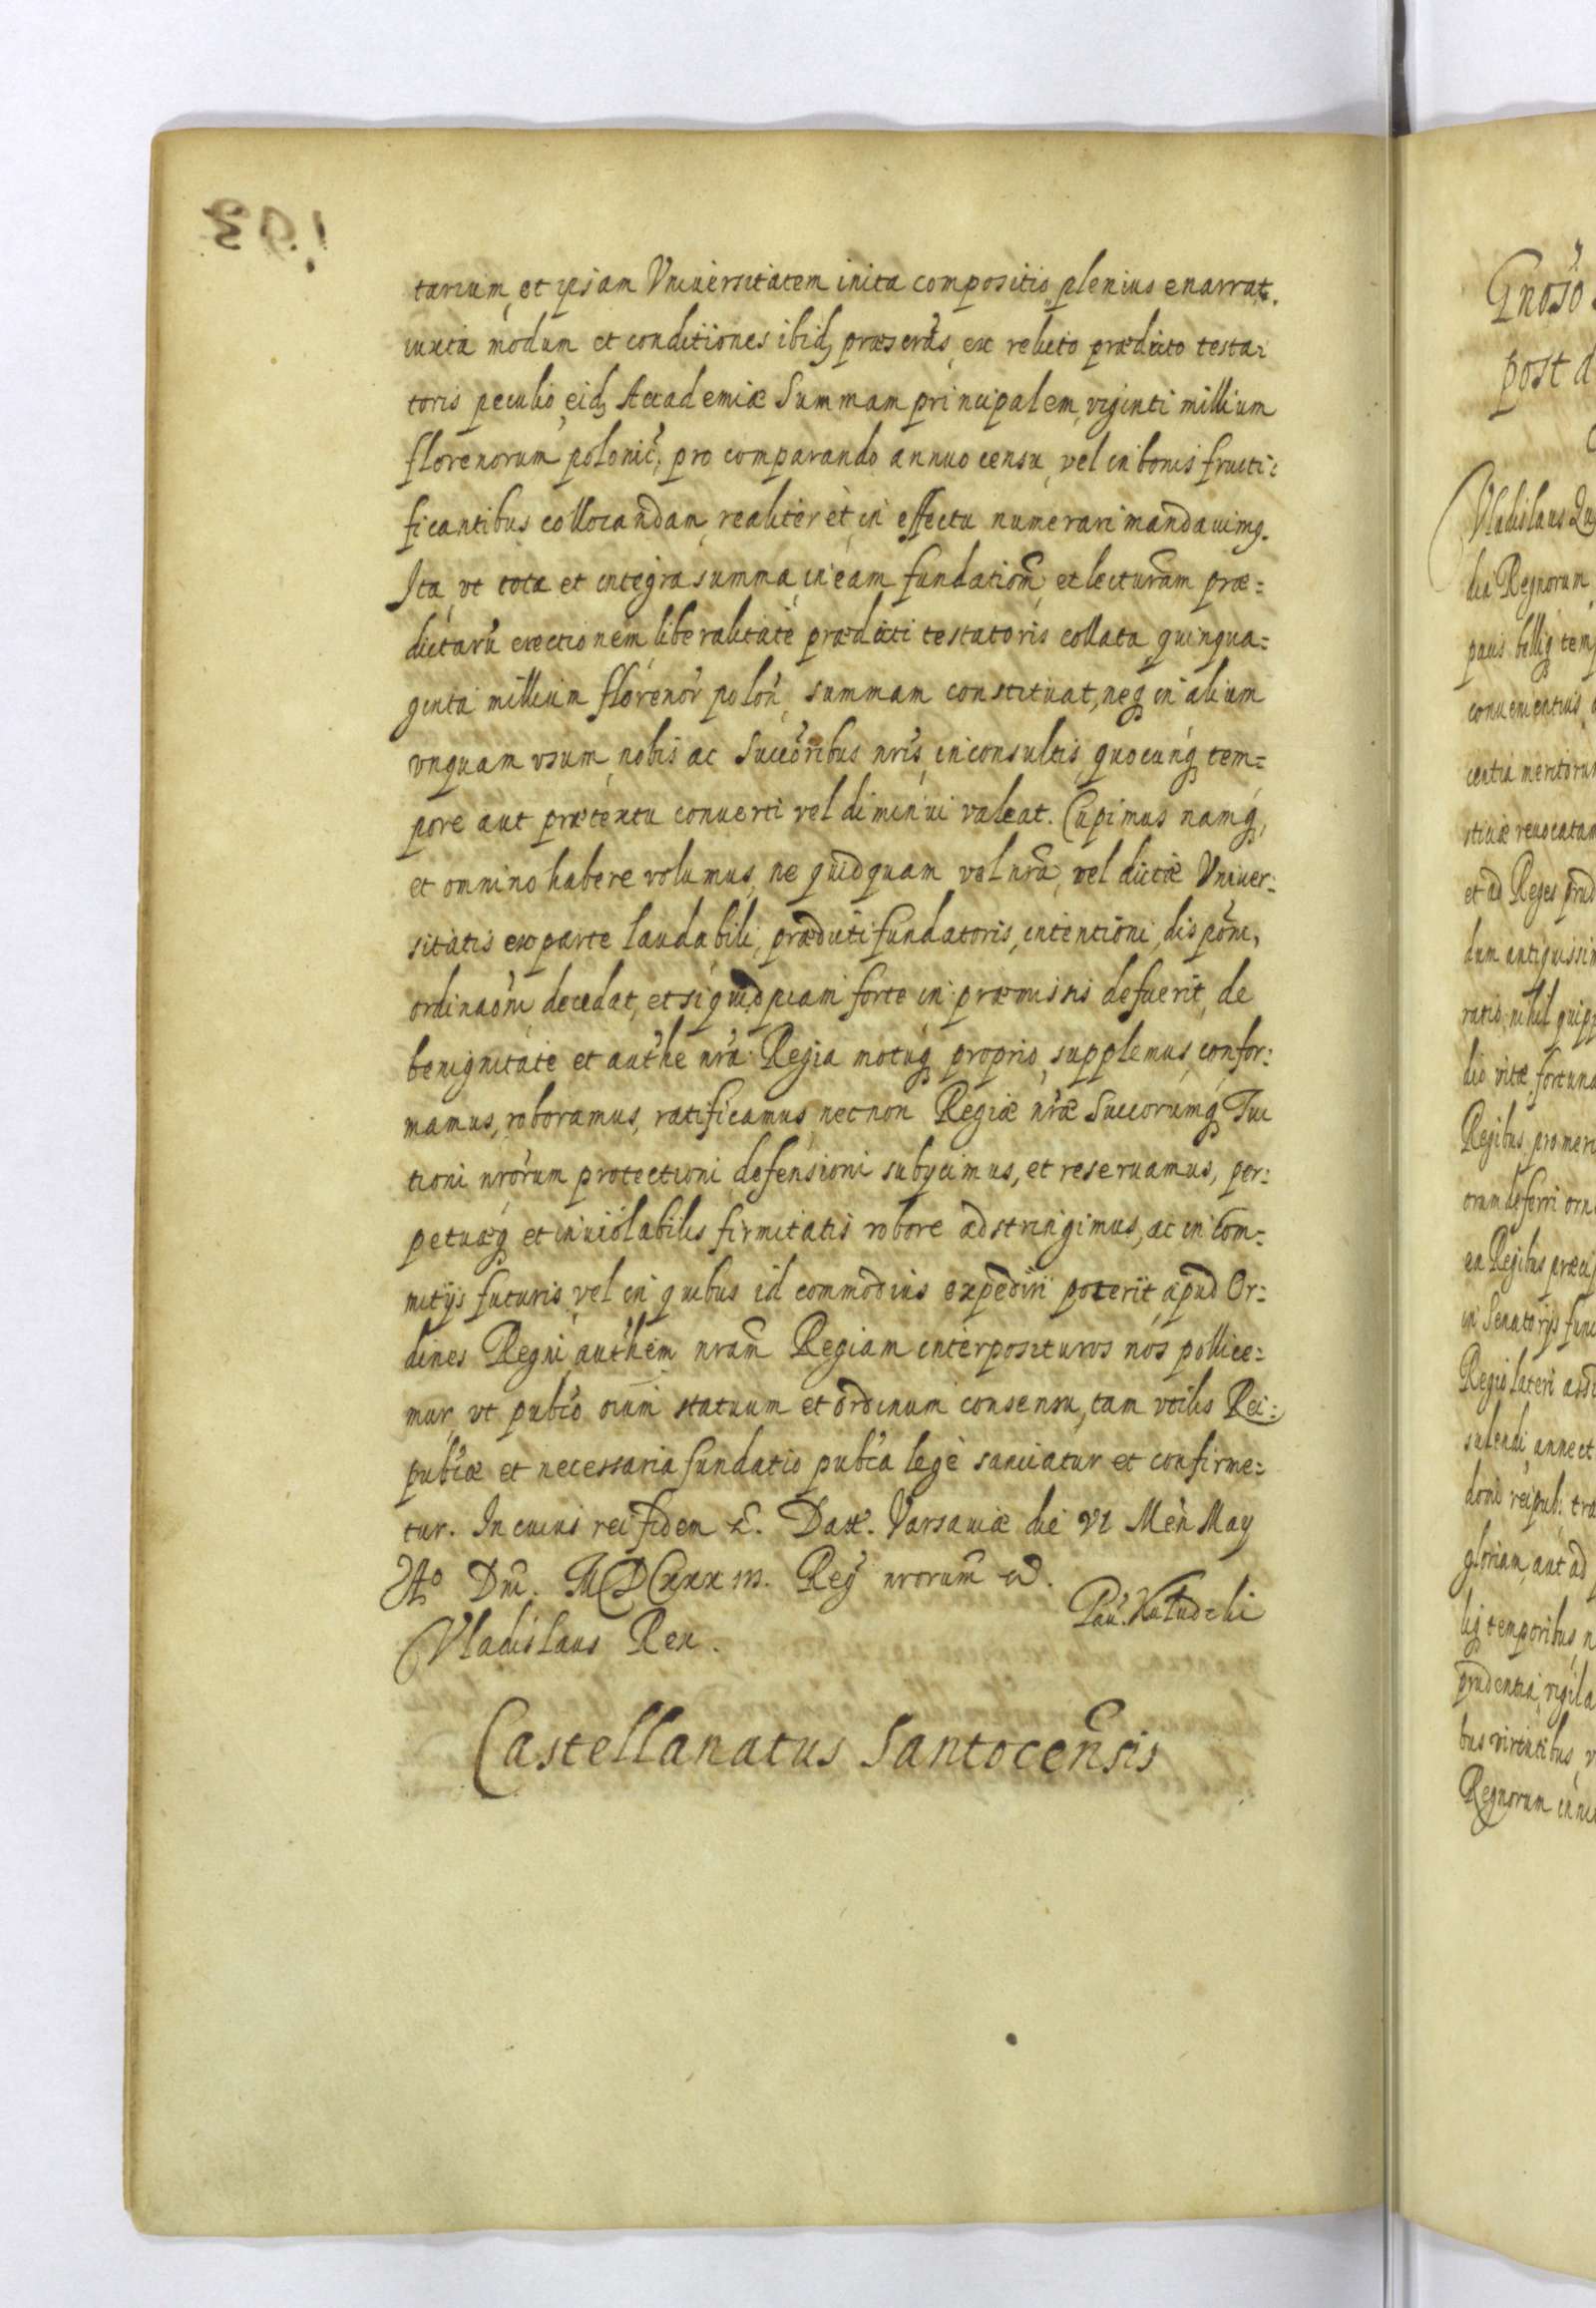 tarium et ipsam Vniuersitatem inita compositio plenius enarrat.
iuxta modum et conditiones ibid, præscrãs, ex relicto prædicto testa:
toris peculio eid, Accademiæ Summam principalem viginti millium
florenorum polonic̃, pro comparando annuo censu, vel in bonis fructi:
ficantibus collocandam, realiter et in effectu numerari mandauimq.
Ita vt tota et integra summa in eam fundatiom̃ et lecturam præ=
dictarũ erectionem liberalitate prædicti testatoris collata quinqua=
ginta millium florenor̃ polon̄ summam constituat, neq in alium
vnquam vsum nobis ac Succõribus nrĩs inconsultis quocunq tem=
pore aut prætextu conuerti vel diminui valeat. Cupimus namq,
et omnino habere volumus, ne quidquam vel nrã, vel dictæ Vniuer:
sitatis ex parte laudabili, prædicti fundatoris, intentioni, dispõni,
ordinaõni decedat, et si quidpiam forte in præmissis defuerit, de
benignitate et authe nrã Regia motuq proprio, supplemus, confor:
mamus, roboramus, ratificamus necnon Regiæ nræ̃ Succorumq Tui
tioni nrõrum protectioni defensioni subycimus, et reseruamus, per:
petuæq et inuiolabilis firmitatis robore adstringimus, ac in Com=
mitys futuris, vel in quibus id commodius expediri poterit apud Or:
dines Regni authem̃ nram̃ Regiam interposituros nos pollice=
mur, vt publĩo oĩum statuum et ordinum consensu, tam vtilis Rei:
publĩæ et necessaria fundatio publĩa lege sanciatur et confirme=
tur. In cuius rei fidem &. Datt. Varsauiæ die VI Men May
Aº Dnĩ. MDCXXXIII. Reg nrorum̃ &.
Vladislaus Rex.
Castellanatus Santocensis
Gnõso
post d
Vladislaus
dia Regnorum
pacis bellig temp
conuenientius
centia meritorum
stiuæ reuocatam
et ad Reges prud
dum antiquissim
ratio, nihil quipp
dio vitæ, fortuna
Regibus promeri
orum deferri orn
ea Regibus præci
in Senatorys func
Regio lateri
sulendi annect
reipub: tra
gloriam, aut ad
liq temporibus, n
prudentia, vigila
bus virentibus, v
Regnorum